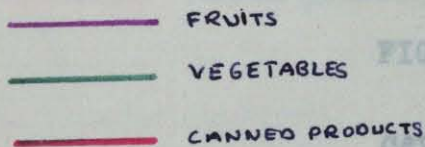 FRUITS
VEGETABLES
CANNED PRODUCTS